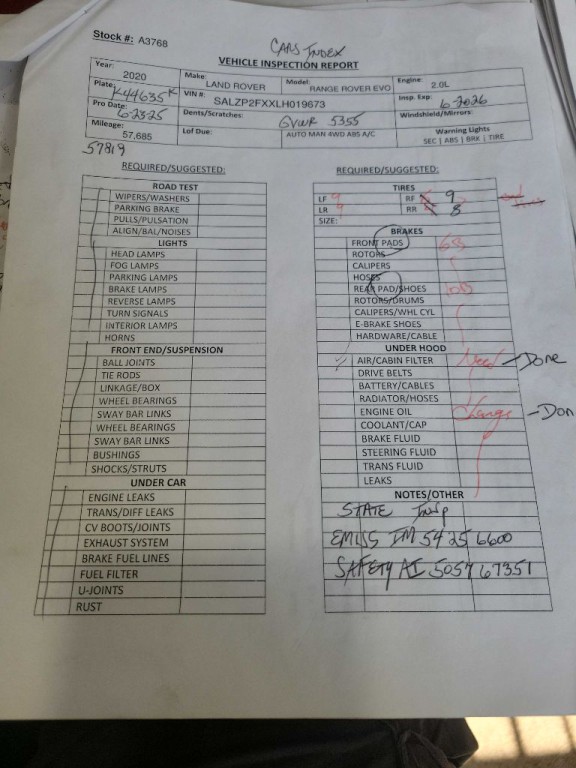 Stock #: A3768
CARS INDEX
VEHICLE INSPECTION REPORT
Year: 2020 Make: LAND ROVER Model: RANGE ROVER EVO Engine: 2.0L
Plate: K44635K VIN #: SALZP2FXXLH019673 Insp. Exp: 6-2026
Pro Date: 6-23-25 Dents/Scratches: GVWR 5355 Windshield/Mirrors:
Mileage: 57,685 Lof Due: AUTO MAN 4WD ABS A/C Warning Lights SEC | ABS | BRK | TIRE
57819
REQUIRED/SUGGESTED:
ROAD TEST
WIPERS/WASHERS
PARKING BRAKE
PULLS/PULSATION
ALIGN/BAL/NOISES
LIGHTS
HEAD LAMPS
FOG LAMPS
PARKING LAMPS
BRAKE LAMPS
REVERSE LAMPS
TURN SIGNALS
INTERIOR LAMPS
HORNS
FRONT END/SUSPENSION
BALL JOINTS
TIE RODS
LINKAGE/BOX
WHEEL BEARINGS
SWAY BAR LINKS
WHEEL BEARINGS
SWAY BAR LINKS
BUSHINGS
SHOCKS/STRUTS
UNDER CAR
ENGINE LEAKS
TRANS/DIFF LEAKS
CV BOOTS/JOINTS
EXHAUST SYSTEM
BRAKE FUEL LINES
FUEL FILTER
U-JOINTS
RUST
REQUIRED/SUGGESTED:
TIRES
LF 9 RF 9
LR 9 RR 8
SIZE:
BRAKES
FRONT PADS
ROTORS
CALIPERS
HOSES
REAR PAD/SHOES
ROTORS/DRUMS
CALIPERS/WHL CYL
E-BRAKE SHOES
HARDWARE/CABLE
UNDER HOOD
AIR/CABIN FILTER Need - Done
DRIVE BELTS
BATTERY/CABLES
RADIATOR/HOSES
ENGINE OIL Change - Don
COOLANT/CAP
BRAKE FLUID
STEERING FLUID
TRANS FLUID
LEAKS
NOTES/OTHER
STATE Insp
EMISS IM 54256600
SAFETY AI 505767351